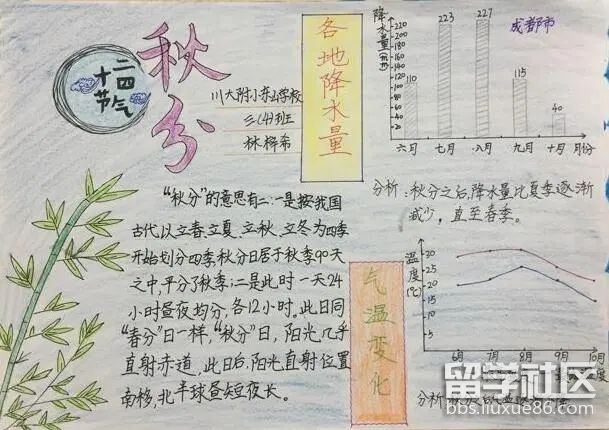 秋分
二四
十
节气
川大附小东山学校
三(4)班
林桦希
各地降水量
"秋分"的意思有二:一是按我国
古代以立春、立夏、立秋、立冬为四季
开始划分四季,秋分日居于秋季90天
之中,平分了秋季;二是此时一天24
小时昼夜均分,各12小时。此日同
"春分"日一样,"秋分"日,阳光几乎
直射赤道,此日后,阳光直射位置
南移,北半球昼短夜长。
降水量(mm)
成都市
220
200
180
160
140
120
100
80
60
40
20
110
223
227
115
40
六月 七月 八月 九月 十月 月份
分析:秋分之后,降水量比夏季逐渐
减少,直至春季。
气温变化
温度(℃)
30
25
20
15
6月 7月 8月 9月 10月
分析:
留学社区
bbs.liuxue86.com